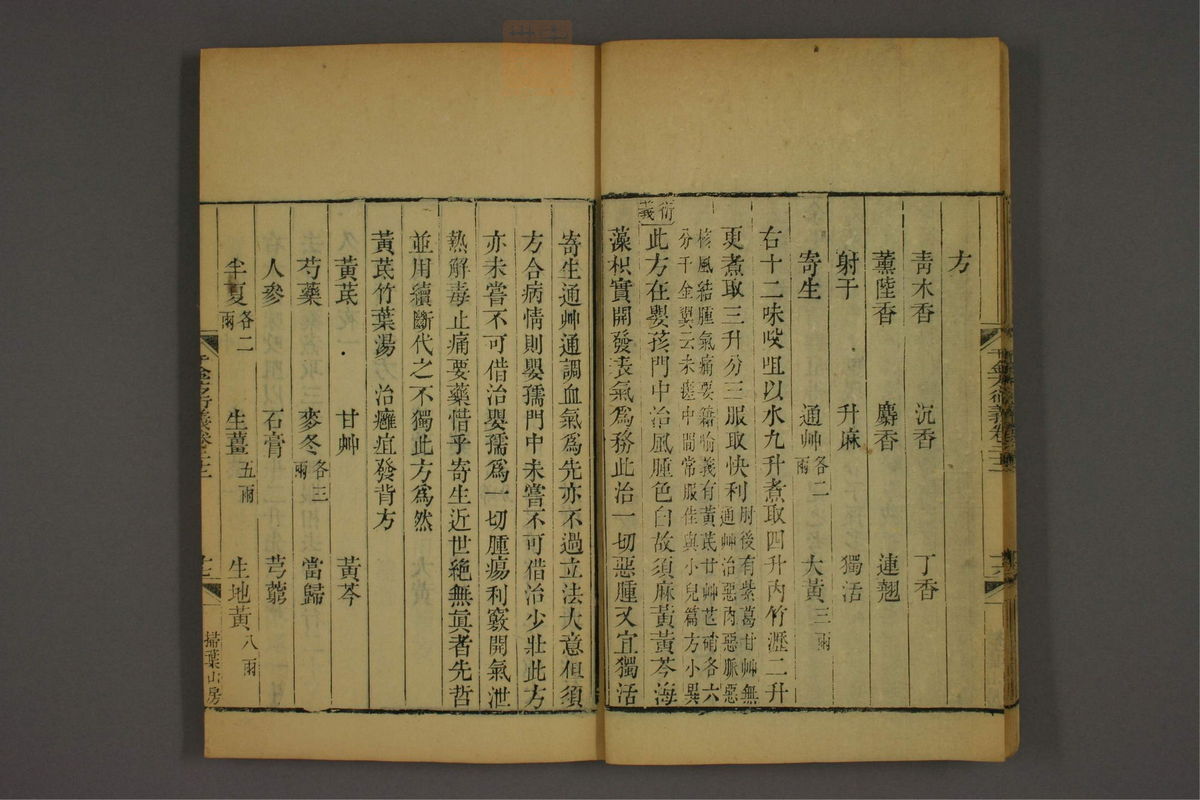 方
靑木香　沉香　丁香
薰陸香　麝香　連翹
射干　升麻　獨活
寄生　通艸各二兩　大黃三兩
右十二味㕮咀以水九升煮取四升內竹瀝二升
更煮取三升分三服取快利肘後有紫葛甘艸無
通艸治惡肉惡脈惡
核風結腫氣痛要籍喻義有黃芪甘艸芒硝各六
分千金翼云未瘥中間常服佳與小兒篇方小異
衍義
此方在嬰孩門中治風腫色白故須麻黃黃芩海
藻枳實開發表氣爲務此治一切惡腫又宜獨活
寄生通艸通調血氣爲先亦不過立法大意但須
方合病情則嬰孺門中未嘗不可借治少壯此方
亦未嘗不可借治嬰孺爲一切腫瘍利竅開氣泄
熱解毒止痛要藥惜乎寄生近世絕無眞者先哲
並用續斷代之不獨此方爲然
黃芪竹葉湯　治癰疽發背方
黃芪　甘艸　黃芩
芍藥　麥冬各三兩　當歸
人參　石膏　芎藭
半夏各二兩　生薑五兩　生地黃八兩
掃葉山房